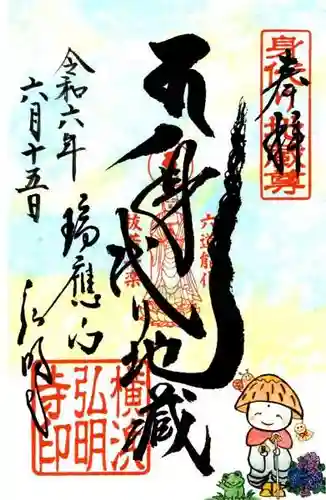 奉拝
身代り地蔵尊
身代り地蔵
六道能化
抜苦与楽
瑞應山
弘明寺
令和六年
六月十五日
横浜
弘明
寺印